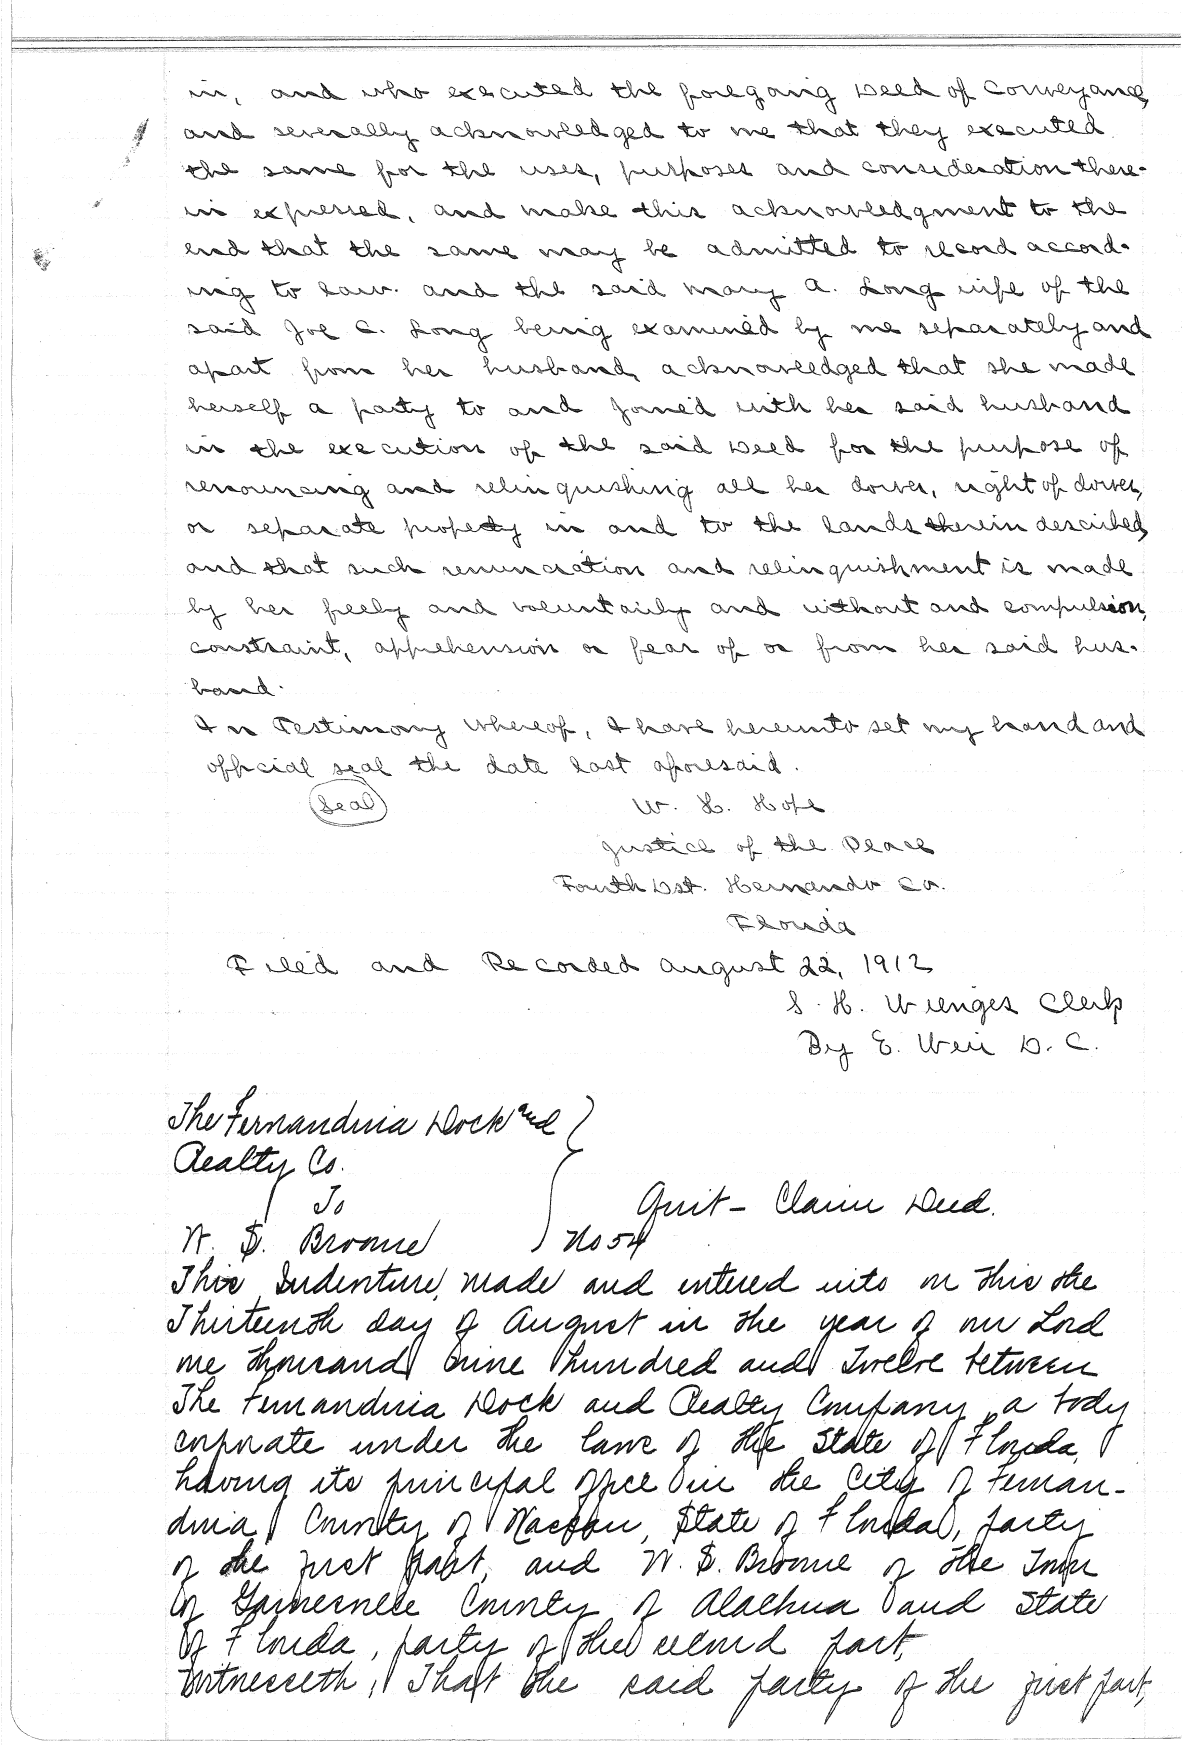 in, and who executed the foregoing Deed of Conveyance,
and severally acknowledged to me that they executed
the same for the uses, purposes and consideration there-
in expressed, and make this acknowledgment to the
end that the same may be admitted to record accord-
ing to law. and the said Mary A. Long wife of the
said Joe C. Long being examined by me separately and
apart from her husband, acknowledged that she made
herself a party to and joined with her said husband
in the execution of the said Deed for the purpose of
renouncing and relinquishing all her dower, right of dower,
or separate property in and to the lands therein described,
and that such renunciation and relinquishment is made
by her freely and voluntairly and without and compulsion,
constraint, apprehension or fear of or from her said hus-
band.
In Testimony Whereof, I have hereunto set my hand and
official seal the date last aforesaid.
(Seal) W. H. Hope
Justice of the Peace
Fourth Dst. Hernando Co.
Florida
Filed and Recorded August 22, 1912
S. H. Wienges Clerk
By E. Weir D. C.
The Fernandina Dock and
Realty Co.
To Quit-Claim Deed.
W. S. Broome No 54
This Indenture, made and entered into on this the
Thirteenth day of August in the year of our Lord
one thousand nine hundred and Twelve between
The Fernandina Dock and Realty Company, a body
corporate under the laws of the State of Florida,
having its principal office in the City of Fernan-
dina, County of Nassau, State of Florida, party
of the first part, and W. S. Broome of the Town
of Gainesville County of Alachua and State
of Florida, party of the second part,
Witnesseth, That the said party of the first part,